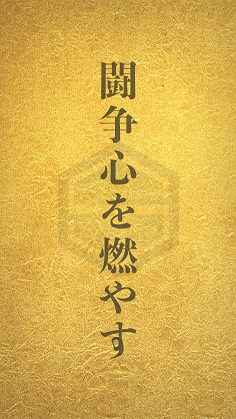 闘争心を燃やす